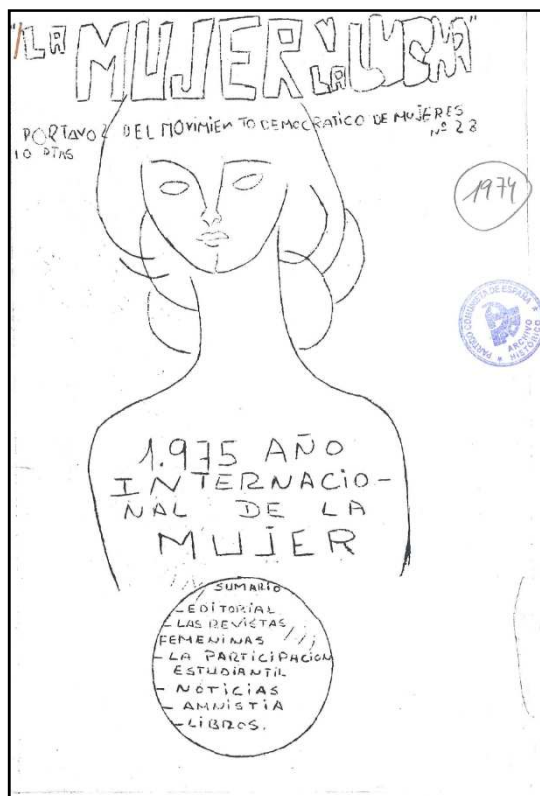 "LA MUJER Y LA LUCHA"
PORTAVOZ DEL MOVIMIENTO DEMOCRATICO DE MUJERES
10 PTAS
Nº 23
1974
PARTIDO COMUNISTA DE ESPAÑA
ARCHIVO HISTÓRICO
1.975 AÑO
INTERNACIO-
NAL DE LA
MUJER
SUMARIO
-EDITORIAL
-LAS REVISTAS
FEMENINAS
-LA PARTICIPACION
ESTUDIANTIL
-NOTICIAS
-AMNISTIA
-LIBROS.